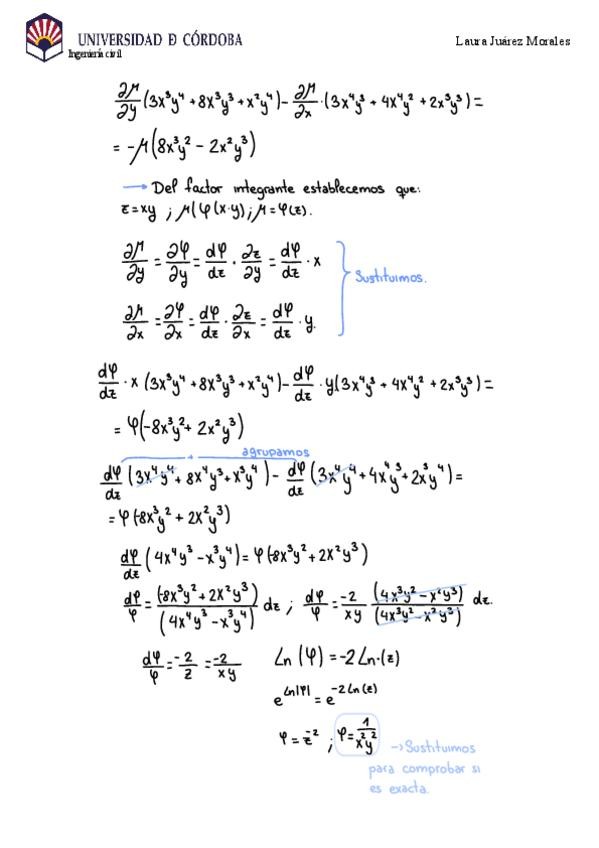 UNIVERSIDAD Ð CÓRDOBA
Laura Juárez Morales
Ingeniería civil
∂μ/∂y (3x³y⁴ + 8x³y³ + x²y⁴) - ∂μ/∂x · (3x⁴y³ + 4x⁴y² + 2x³y³) =
= -μ(8x³y² - 2x²y³)
→ Del factor integrante establecemos que:
z = xy ; μ(φ(x·y) ; μ = φ(z).
∂μ/∂y = ∂φ/∂y = dφ/dz · ∂z/∂y = dφ/dz · x
Sustituimos.
∂μ/∂x = ∂φ/∂x = dφ/dz · ∂z/∂x = dφ/dz · y.
dφ/dz · x (3x³y⁴ + 8x³y³ + x²y⁴) - dφ/dz · y(3x⁴y³ + 4x⁴y² + 2x³y³) =
= φ(-8x³y² + 2x²y³)
+ agrupamos
dφ/dz (3x⁴y⁴ + 8x⁴y³ + x³y⁴) - dφ/dz (3x⁴y⁴ + 4x⁴y³ + 2x³y⁴) =
= φ(-8x³y² + 2x²y³)
dφ/dz (4x⁴y³ - x³y⁴) = φ(-8x³y² + 2x²y³)
dφ/φ = (-8x³y² + 2x²y³)/(4x⁴y³ - x³y⁴) dz ; dφ/φ = -2/xy (4x³y² - x²y³)/(4x³y² - x²y³) dz.
dφ/φ = -2/z = -2/xy Ln(φ) = -2Ln·(z)
e^Ln|φ| = e^-2Ln(z)
φ = z⁻² ; φ = 1/x²y² → Sustituimos
para comprobar si
es exacta.